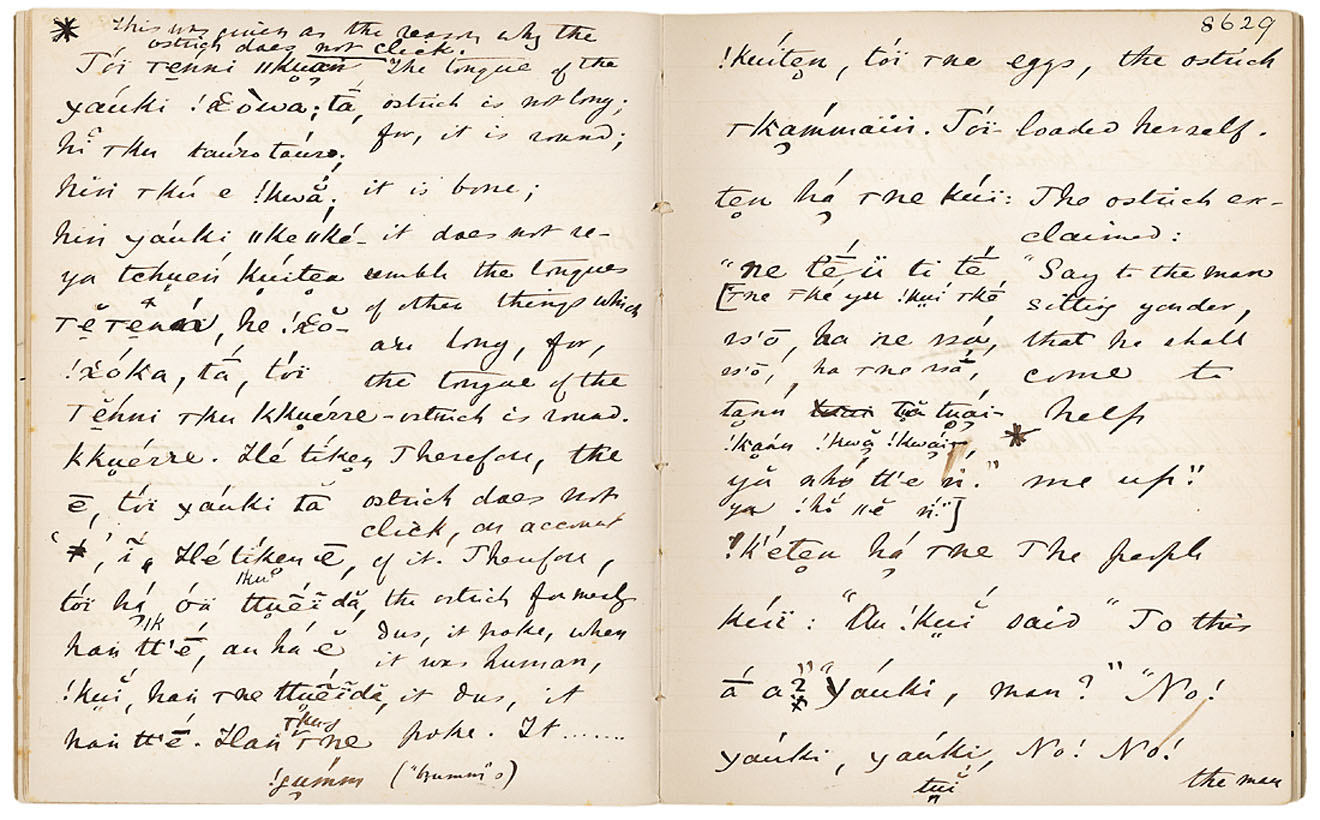 This was given as the reason why the
ostrich does not click.
Tóï теnni ǁkuạn The tongue of the
yáuki !χòwa; tā, ostrich is not long;
hĭ тku táuro táuro; for, it is round;
hiń тkú e !kwă; it is bone;
hiń yáuki ǁkeǁké- it does not re-
ya tchueń kúiten semble the tongues
he !χŏ- of other things which
!χóka, tā, tóï are long, for,
the tongue of the
теnni тku kkuérre- ostrich is round.
kkuérre. Hé tíken Therefore, the
ē, tóï yáuki tă ostrich does not
click, on account
ĭ. Hé tíken ē, of it. Therefore,
tóï há óä the ostrich formerly
hań tt'é, au há ĕ dus, it poke, when
it was human,
!kuĭ, hań тne ttuĕĭdă, it dus, it
hań tt'é. Hań тne poke. It .......
!gumm ("brummi"s)
8629
!kúiten, tóï тne eggs, the ostrich
тkạmmaïn. Tóï- loaded herself.
ten há тne kúï: The ostrich ex-
claimed:
"ne té ü ti té "Say to the man
[тne тhé yu !kuí тkó sitting yonder,
ss'ō, ha ne ssá, that he shall
ss'ō, ha тne ssá, come to
tanń tuái- help
!kaán !kwă !kwáin,
yă nhó tt'e ń." me up!"
ya !hŏ ǁĕ ń."]
!k'éten há тne The people
kúï: "Au !kuĭ said "To this
á a?" "Yáuki, man?" "No!
yáuki, yáuki, No! No!
tuĭ the man